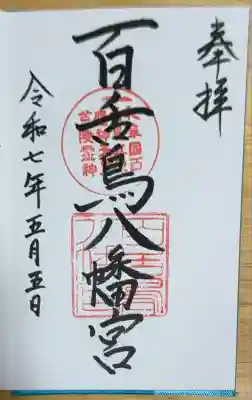 奉拝
百舌鳥八幡宮
令和七年五月五日